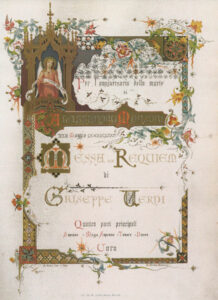 Per l'anniversario della morte
di
Alessandro Manzoni
Messa da Requiem
di
Giuseppe Verdi
Quattro parti principali
Soprano - Mezzo Soprano - Tenore - Basso
Coro